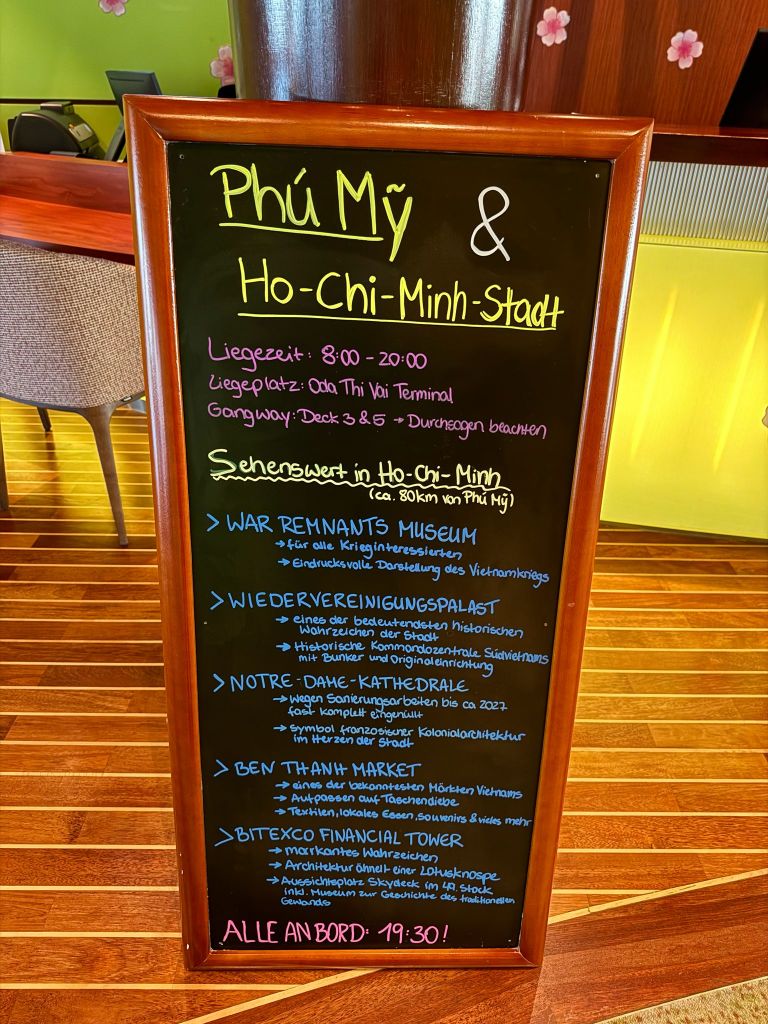 Phú Mỹ &
Ho-Chi-Minh-Stadt
Liegezeit: 8:00 - 20:00
Liegeplatz: Oda Thi Vai Terminal
Gangway: Deck 3 & 5 → Durchsagen beachten
Sehenswert in Ho-Chi-Minh
(ca. 80km von Phú Mỹ)
> WAR REMNANTS MUSEUM
→ für alle Krieginteressierten
→ Eindrucksvolle Darstellung des Vietnamkriegs
> WIEDERVEREINIGUNGSPALAST
→ eines der bedeutendsten historischen
Wahrzeichen der Stadt
→ Historische Kommandozentrale Südvietnams
mit Bunker und Originaleinrichtung
> NOTRE-DAME-KATHEDRALE
→ wegen Sanierungsarbeiten bis ca 2027
fast komplett eingehüllt
→ Symbol französischer Kolonialarchitektur
im Herzen der Stadt
> BEN THANH MARKET
→ eines der bekanntesten Märkten Vietnams
→ Aufpassen auf Taschendiebe
→ Textilien, lokales Essen, souvenirs & vieles mehr
> BITEXCO FINANCIAL TOWER
→ markantes Wahrzeichen
→ Architektur ähnelt einer Lotusknospe
→ Aussichtsplatz Skydeck im 49. Stock
inkl. Museum zur Geschichte des traditionellen
Gewands
ALLE AN BORD: 19:30!